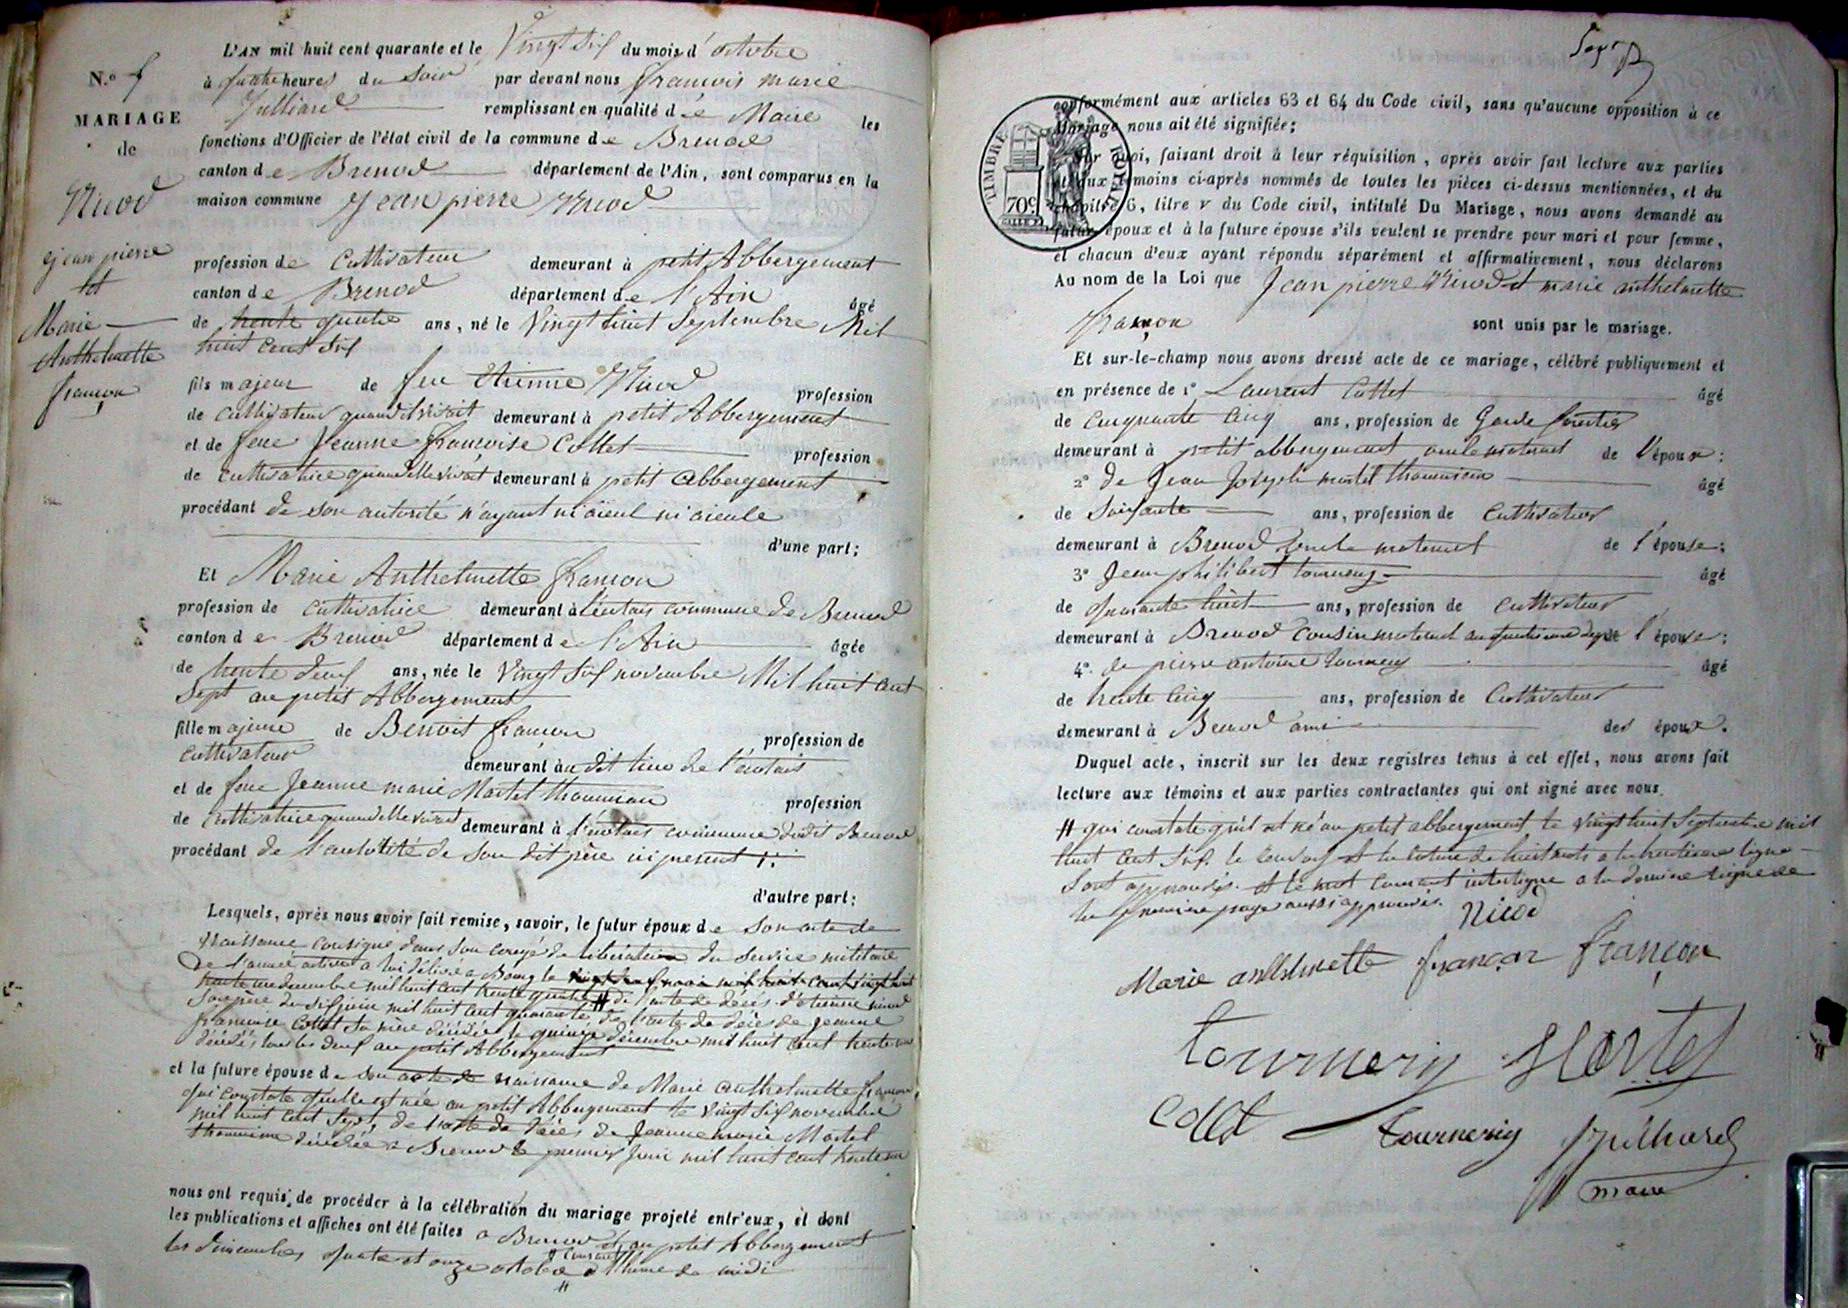 L'AN mil huit cent quarante et le Vingt six du mois d' octobre
N.° 5
à quatre heures du soir par devant nous françois marie
Julliard remplissant en qualité de Maire les
MARIAGE
fonctions d'Officier de l'état civil de la commune de Brenod
de
canton de Brenod département de l'Ain, sont comparus en la
Nicod
maison commune Jean pierre Nicod
jean pierre
profession de Cultivateur demeurant à petit Abbergement
et
canton de Brenod département de l'Ain âgé
Marie
de trente quatre ans, né le Vingt huit Septembre Mil
huit cent six
Anthelmette
françon
fils majeur de feu Etienne Nicod profession
de cultivateur quand il vivait demeurant à petit Abbergement
et de feue Jeanne françoise Collet profession
de cultivatrice quand elle vivait demeurant à petit abbergement
procédant de son autorité n'ayant ni aïeul ni aïeule
d'une part;
Et Marie Anthelmette françon
profession de cultivatrice demeurant à commune de Brenod
canton de Brenod département de l'Ain âgée
de trente deux ans, née le Vingt six novembre Mil huit cent
sept au petit Abbergement
fille majeure de Benoit françon profession de
cultivateur demeurant au dit lieu de
et de feue Jeanne marie Martel thomasson
profession
de cultivatrice quand elle vivait demeurant à commune dudit Brenod
procédant de l'autorité de son dit père ici présent
d'autre part;
Lesquels, après nous avoir fait remise, savoir, le futur époux de son acte de
naissance consigné dans son congé de libération du service militaire
de l'armée active a lui délivré a Bourg le
trente un decembre mil huit cent trente quatre # de l'acte de décès d'etienne nicod
son père du dix juin mil huit cent quarante de l'acte de décès de Jeanne
françoise Collet sa mère décédée le quinze décembre mil huit cent trente
décédés tous les deux au petit Abbergement
et la future épouse de son acte de naissance de Marie anthelmette françon,
qui constate qu'elle est née au petit Abbergement le vingt six novembre
mil huit cent sept, de l'acte de décès de Jeanne marie Martel
décédée a Brenod le premier Juin mil huit cent trente
nous ont requis de procéder à la célébration du mariage projeté entr'eux, et dont
les publications et affiches ont été faites a Brenod et au petit Abbergement
les dimanches quatre et onze octobre courant a l'heure de midi
#
conformément aux articles 63 et 64 du Code civil, sans qu'aucune opposition à ce
Mariage nous ait été signifiée;
TIMBRE ROYAL
70c
Sur quoi, faisant droit à leur réquisition, après avoir fait lecture aux parties
et aux témoins ci-après nommés de toutes les pièces ci-dessus mentionnées, et du
chapitre 6, titre v du Code civil, intitulé Du Mariage, nous avons demandé au
futur époux et à la future épouse s'ils veulent se prendre pour mari et pour femme,
et chacun d'eux ayant répondu séparément et affirmativement, nous déclarons
Au nom de la Loi que Jean pierre Nicod et marie anthelmette
françon sont unis par le mariage.
Et sur-le-champ nous avons dressé acte de ce mariage, célébré publiquement et
en présence de 1° Laurent Collet âgé
de cinquante cinq ans, profession de Garde forestier
demeurant à petit abbergement oncle maternel de l'époux;
2° de Jean Joseph martel thomasson âgé
de Soixante ans, profession de cultivateur
demeurant à Brenod oncle maternel de l'épouse;
3° Jean philibert tournery âgé
de quarante huit ans, profession de cultivateur
demeurant à Brenod cousin maternel au quatrième degré de l'épouse;
4° de pierre antoine tournery âgé
de trente cinq ans, profession de Cultivateur
demeurant à Brenod ami des époux.
Duquel acte, inscrit sur les deux registres tenus à cet effet, nous avons fait
lecture aux témoins et aux parties contractantes qui ont signé avec nous
# qui constate qu'il est né au petit abbergement le vingt huit Septembre mil
huit cent six. le renvoi et la rature de huit mots a la ligne
sont approuvés. et le mot courant interligne a la dernière ligne de
la première page aussi approuvés.
Nicod
Marie anthelmette françon françon
tournery Martel
Collet tournery Julliard
maire